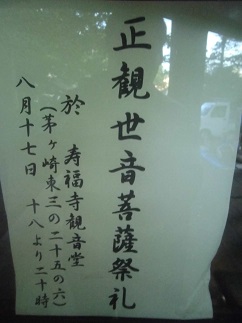 正観世音菩薩祭礼
於 寿福寺観音堂
(茅ヶ崎東三の二十五の六)
八月十七日 十八より二十時